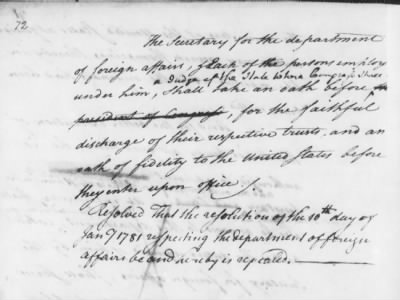 72
The Secretary for the department
of foreign affairs, & each of the persons employ
a Judge of the State where Congress shall
under him, shall take an oath before the
president of Congress, for the faithful
discharge of their respective trusts, and an
oath of fidelity to the United States before
they enter upon office.
Resolved That the resolution of the 10th day of
Jany 1781 respecting the department of foreign
affairs be and hereby is repealed.